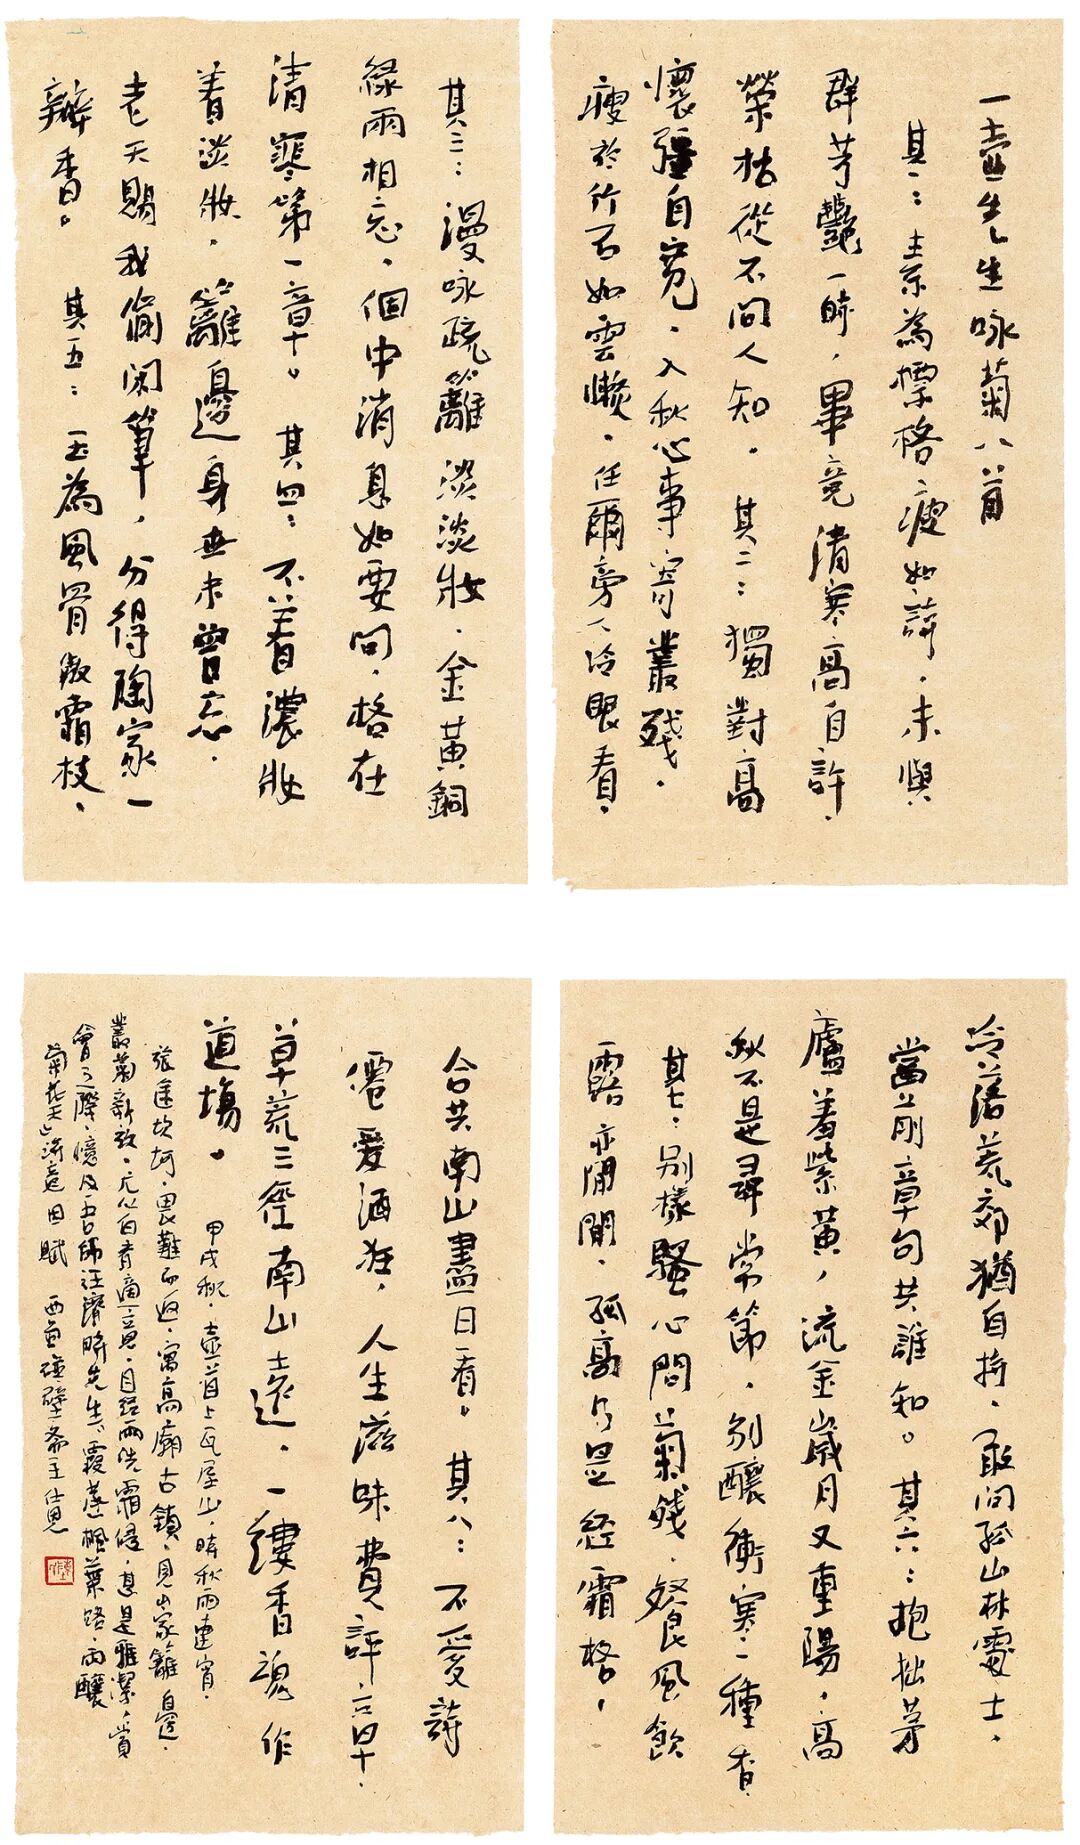 一壺先生咏菊八首
其一：素為標格瘦如詩，未與
群芳艷一時，畢竟清寒高自許，
榮枯從不問人知。其二：獨對高
懷疆自寬，入秋心事寄叢殘，
瘦於竹石如雲懶，任爾旁人冷眼看。
其三：漫咏疏籬淡淡妝，金黃銅
綠兩相忘，個中消息如要問，格在
清寒第一章。其四：不著濃妝
著淡妝，籬邊身世未曾忘，
老天賜我偷閑筆，分得陶家一
瓣香。其五：玉為風骨傲霜枝，
冷落荒郊猶自持，敢問孤山林處士，
當前章句共誰知。其六：抱拙茅
廬羞紫黃，流金歲月又重陽，高
秋不是尋常節，別釀衝寒一種香
其七：別樣騷心問菊殘，餐風飲
露亦閒，孤高乃是經霜格，
合共南山盡日看。其八：不愛詩
僊愛酒狂，人生滋味費評章，
草荒三徑南山遠，一縷香魂作
道場。甲戌秋，壺首上瓦屋山，時秋雨連宵，
途坎坷，畏難而返，寓高廟古鎮，見山家籬邊，
叢菊新放，自有意，自經雨洗霜侵，甚是雅潔，賞
會之際，憶及吾師汪濟時先生霞蒸楓葉路，雨釀
菊花天詩意因賦 西蜀壁齋王仕恩